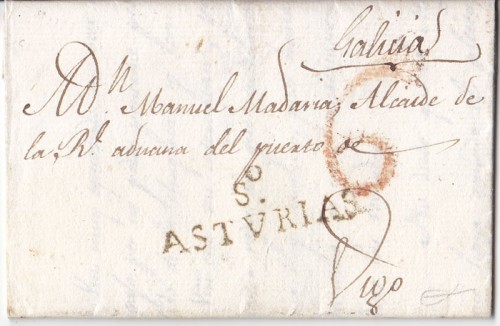 Galicia
A Dn Manuel Madaria, Alcaide de
la Rl aduana del puerto de
6
So
ASTVRIAS
Vigo